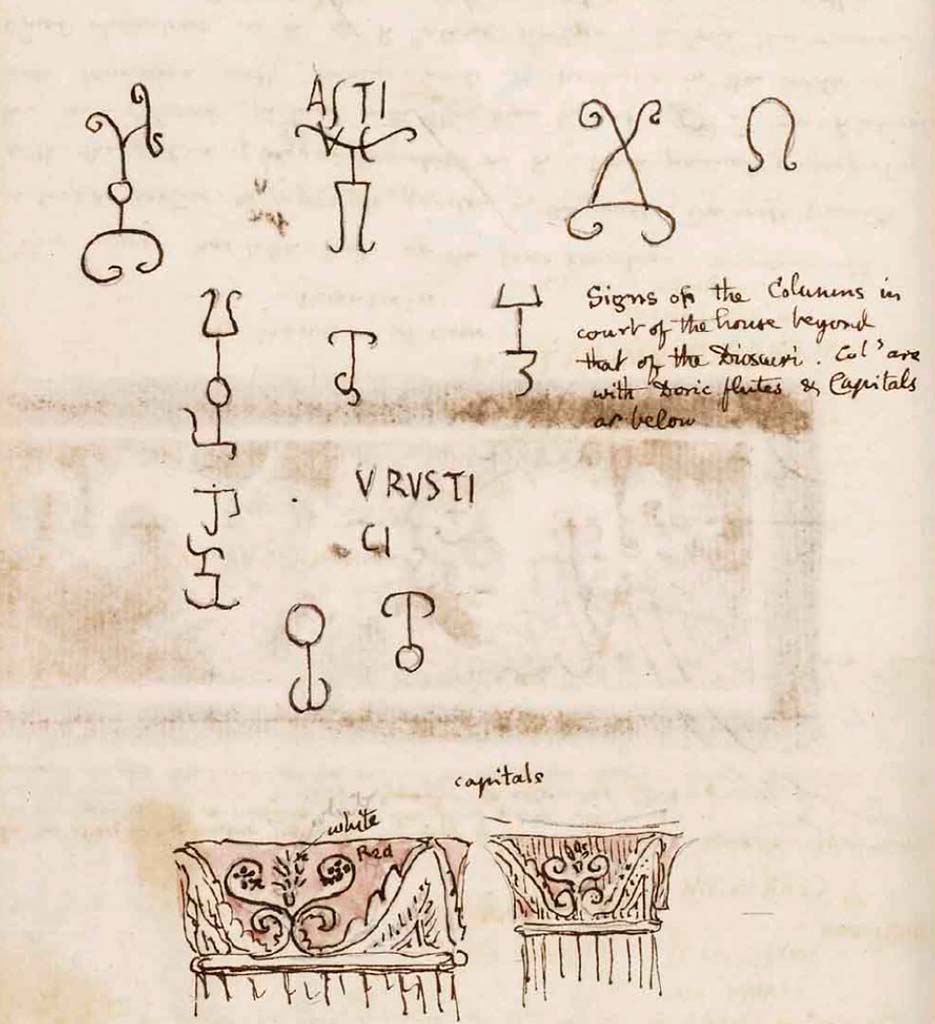 ASTI
Signs on the Columns in
court of the house beyond
that of the Dioscuri. Colˢ are
with Doric flutes & Capitals
as below
V RVSTI
CI
capitals
white
Red